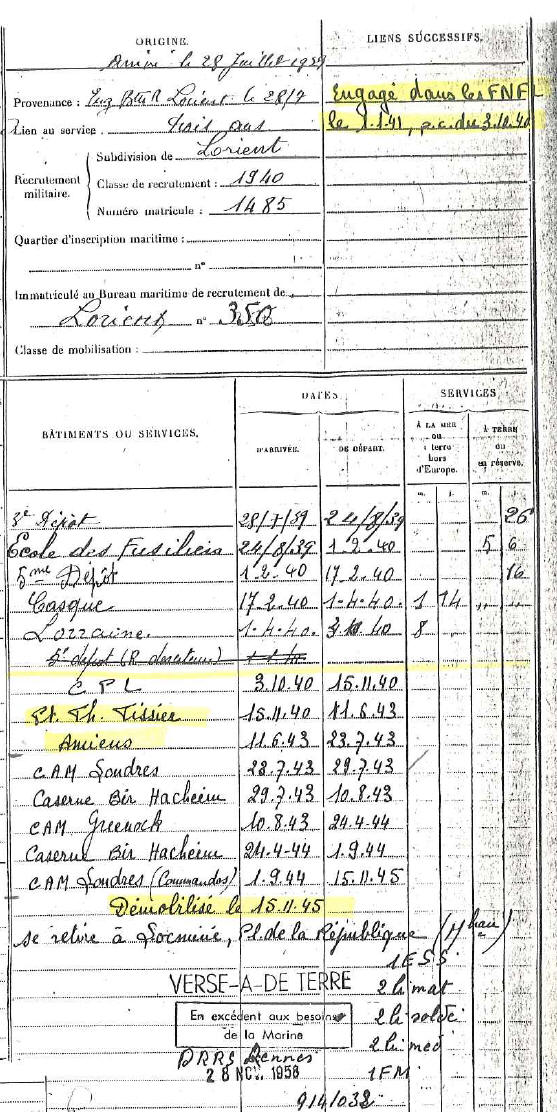 ORIGINE.
LIENS SUCCESSIFS.
Arrivé le 28 Juillet 1939
Provenance : Lorient le 28/7
Engagé dans les FNFL
Lien au service . trois ans
le 1.1.41, p.c. du 3.10.40
Recrutement militaire.
Subdivision de Lorient
Classe de recrutement : 1940
Numéro matricule : 1485
Quartier d'inscription maritime :
n°
Immatriculé au Bureau maritime de recrutement de
Lorient n° 350
Classe de mobilisation :
BÂTIMENTS OU SERVICES.
DATES
D'ARRIVÉE.
DE DÉPART.
SERVICES
À LA MER ou à terre hors d'Europe.
À TERRE ou en réserve.
m. j. m. j.
3e Dépôt 28/7/39 24/8/39 26
École des Fusiliers 24/8/39 1.2.40 5 6
5me Dépôt 1.2.40 17.2.40 16
Casque 17.2.40 1-4-40. 1 14 " "
Lorraine 1-4-40. 3 10 40 8
5e dépôt (R. deserteur)
C P L 3.10.40 15.11.40
Pt. Th. Tissier 15.11.40 11.6.43
Amiens 11.6.43 23.7.43
CAM Londres 23.7.43 29.7.43
Caserne Bir Hacheim 29.7.43 10.8.43
CAM Greenock 10.8.43 24.4-44
Caserne Bir Hacheim 24.4-44 1.9.44
CAM Londres (Commandos) 1.9.44 15.11.45
Démobilisé le 15.11.45
se retire à Locminé, Pl. de la République (Morbihan)
1 ESS
VERSE-A-DE TERRE
2 li mat
En excédent aux besoins
de la Marine
2 li solde
2 li med
DRRS Rennes
28 NOV. 1958
1 FM